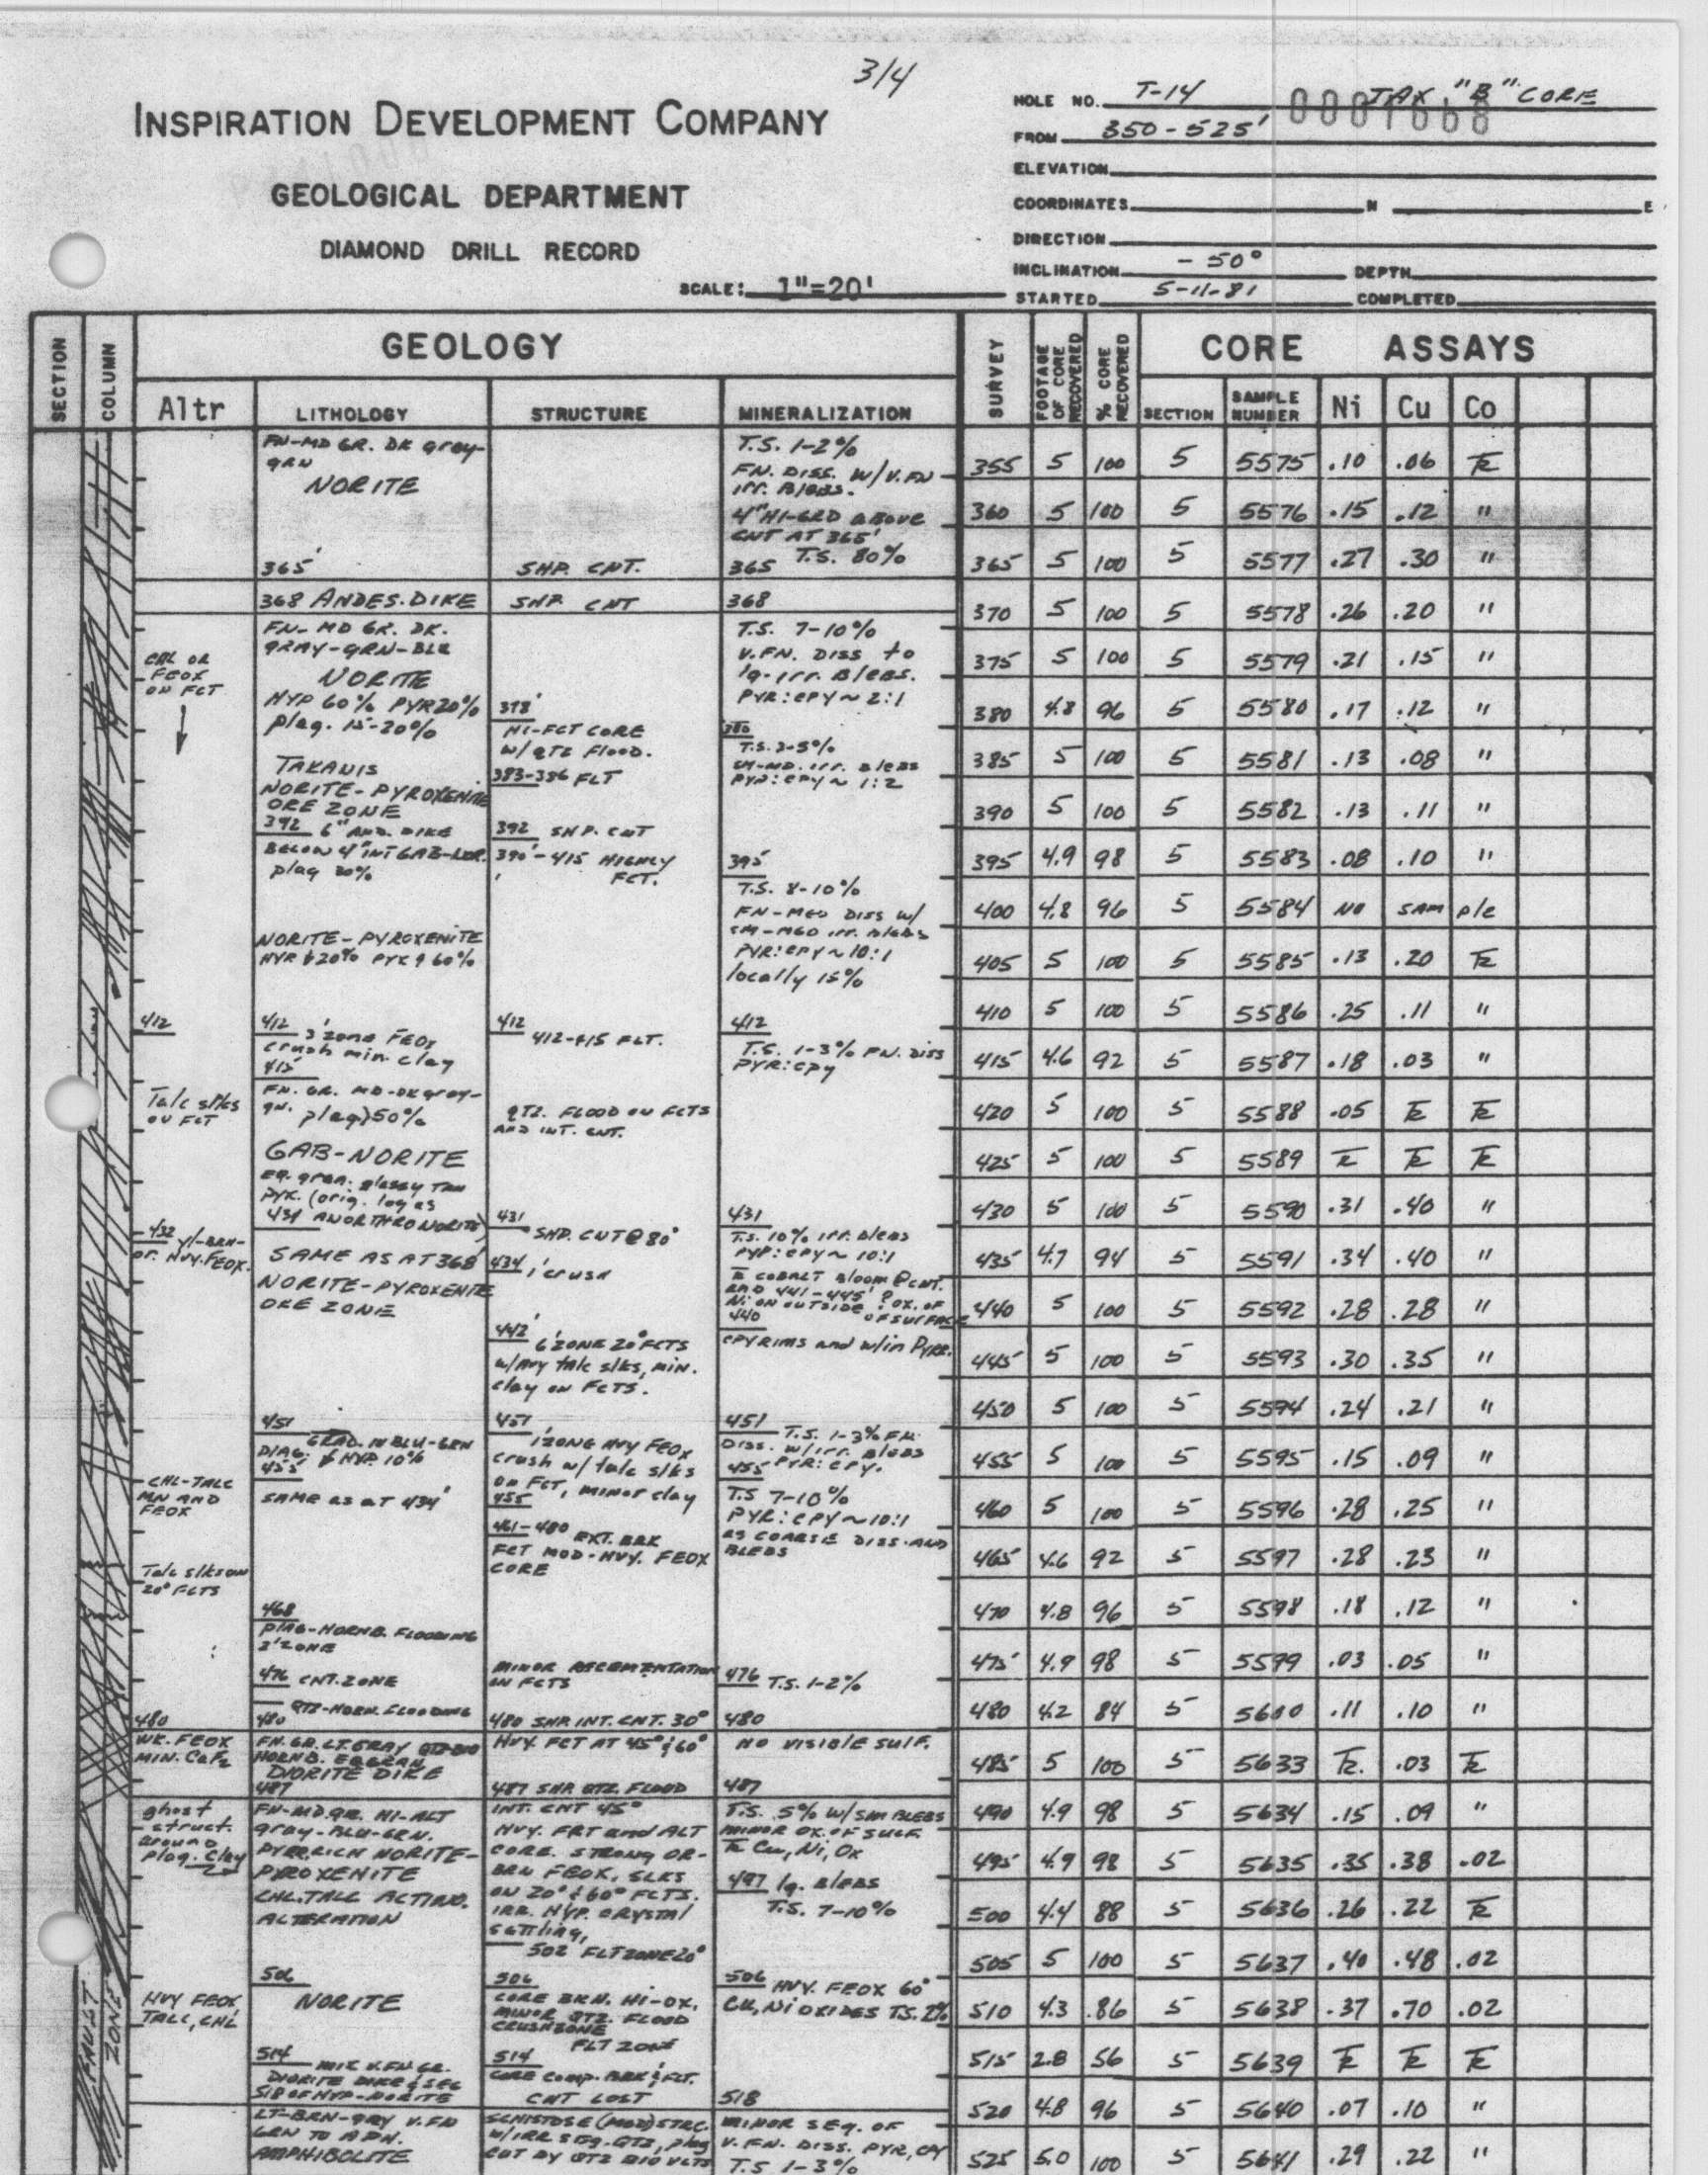 3/4
INSPIRATION DEVELOPMENT COMPANY
GEOLOGICAL DEPARTMENT
DIAMOND DRILL RECORD
SCALE: 1"=20'
HOLE NO. T-14 JAX "B" CORE
0001668
FROM 350-525'
ELEVATION
COORDINATES N E
DIRECTION
INCLINATION -50° DEPTH
STARTED 5-11-81 COMPLETED
SECTION
COLUMN
GEOLOGY
Altr
LITHOLOGY
STRUCTURE
MINERALIZATION
SURVEY
FOOTAGE OF CORE RECOVERED
% CORE RECOVERED
CORE ASSAYS
SECTION
SAMPLE NUMBER
Ni
Cu
Co
CHL OR
FEOX
ON FCT
412
Talc slks
ON FCT
432 yl-BRN-
or. HVY. FEOX.
CHL-TALC
MN AND
FEOX
Talc slks on
20° FCTS
480
WK. FEOX
MIN. CaF2
ghost
struct.
around
plag. clay
HVY FEOX
TALC, CHL
FAULT
ZONE
FN-MD GR. DK gray-
grn
NORITE
365'
368 ANDES. DIKE
FN-MD GR. DK.
GRAY-GRN-BLK
NORITE
HYP 60% PYR 20%
plag. 15-20%
TAKANIS
NORITE-PYROXENITE
ORE ZONE
392 6" AND. DIKE
BELOW 4" INT GAB-NOR.
plag 30%
NORITE-PYROXENITE
412 3' zone FEOX
crush min. clay
415'
FN. GR. MD-DK gray-
gn. plag>50%
GAB-NORITE
EQ. gran. glassy TAN
PYX. (orig. log as
431 ANORTHRONORITE)
SAME AS AT 368'
NORITE-PYROXENITE
ORE ZONE
451
GRAD. IN BLU-GRN
455' HYP 10%
SAME as AT 434'
468
PLAG-HORNB. FLOODING
2' ZONE
476 CNT. ZONE
480 QTZ-HORN. FLOODING
FN. GR. LT. GRAY
HORNB. EQGRAN
DIORITE DIKE
487
FN-MD. GR. HI-ALT
gray-BLU-GRN.
PYRR. RICH NORITE-
PYROXENITE
CHL. TALC ACTINO.
ALTERATION
506
NORITE
514 MIX V. FN GR.
DIORITE DIKE & SEG
518 OF HYP-NORITE
LT-BRN-GRY V. FN
GRN TO APH.
AMPHIBOLITE
SHP. CNT.
SHP CNT
378'
HI-FCT CORE
W/QTZ FLOOD.
383-386 FLT
392 SHP. CNT
390'-415 HIGHLY
FCT.
412
412-415 FLT.
QTZ. FLOOD ON FCTS
AND INT. CNT.
431
SHP. CUT @ 80°
434 1' crush
442'
6' ZONE 20° FCTS
w/HVY talc slks, min.
clay on FCTS.
451
1' ZONE HVY FEOX
crush w/ talc slks
on FCT, minor clay
455
461-480 EXT. BRK
FCT MOD-HVY. FEOX
CORE
MINOR RECEMENTATION
ON FCTS
480 SHR INT. CNT. 30°
HVY. FCT AT 45° & 60°
487 SHR QTZ. FLOOD
INT. CNT 45°
HVY. FRT and ALT
CORE. STRONG OR-
BRN FEOX, SLKS
ON 20° & 60° FCTS.
IRR. HYP. CRYSTAL
settling,
502 FLT ZONE 20°
506
CORE BRN. HI-OX.
MINOR QTZ. FLOOD
CRUSH ZONE
FLT ZONE
514
CORE COMP. BRK & FLT.
CNT LOST
SCHISTOSE (MOD) STRC.
W/IRR SEG. QTZ, plag
CUT BY QTZ BIO VLTS
T.S. 1-2%
FN. DISS. W/V. FN
irr. Blebs.
4" HI-GRD above
CNT AT 365'
365 T.S. 80%
368
T.S. 7-10%
V. FN. DISS to
lg-irr. Blebs.
PYR:CPY ~ 2:1
380
T.S. 3-5%
SM-MD. irr. Blebs
PYR:CPY ~ 1:2
395'
T.S. 8-10%
FN-MED DISS w/
SM-MED irr. Blebs
PYR:CPY ~ 10:1
locally 15%
412
T.S. 1-3% FN. DISS
PYR:CPY
431
T.S. 10% irr. blebs
PYR:CPY ~ 10:1
Tr COBALT BLOOM @ CNT.
AND 441-445' ? OX. OF
Ni ON OUTSIDE OF SURFACE
440
CPY RIMS and w/in PYRR.
451 T.S. 1-3% FN.
DISS. w/irr. Blebs
455 PYR:CPY.
T.S 7-10%
PYR:CPY ~ 10:1
AS COARSE DISS. AND
BLEBS
476 T.S. 1-2%
480
NO VISIBLE SULF.
487
T.S. 5% W/SM BLEBS
MINOR OX. OF SULF.
Tr Cu, Ni, Ox
497 lg. Blebs
T.S. 7-10%
506 HVY. FEOX 60°
CU, Ni OXIDES T.S. 2%
518
MINOR SEG. OF
V. FN. DISS. PYR, CPY
T.S 1-3%
355 5 100 5 5575 .10 .06 Tr
360 5 100 5 5576 .15 .12 "
365 5 100 5 5577 .27 .30 "
370 5 100 5 5578 .26 .20 "
375 5 100 5 5579 .21 .15 "
380 4.8 96 5 5580 .17 .12 "
385 5 100 5 5581 .13 .08 "
390 5 100 5 5582 .13 .11 "
395 4.9 98 5 5583 .08 .10 "
400 4.8 96 5 5584 NO SAM ple
405 5 100 5 5585 .13 .20 Tr
410 5 100 5 5586 .25 .11 "
415 4.6 92 5 5587 .18 .03 "
420 5 100 5 5588 .05 Tr Tr
425 5 100 5 5589 Tr Tr Tr
430 5 100 5 5590 .31 .40 "
435 4.7 94 5 5591 .34 .40 "
440 5 100 5 5592 .28 .28 "
445 5 100 5 5593 .30 .35 "
450 5 100 5 5594 .24 .21 "
455 5 100 5 5595 .15 .09 "
460 5 100 5 5596 .28 .25 "
465 4.6 92 5 5597 .28 .23 "
470 4.8 96 5 5598 .18 .12 "
475 4.9 98 5 5599 .03 .05 "
480 4.2 84 5 5600 .11 .10 "
485 5 100 5 5633 Tr. .03 Tr
490 4.9 98 5 5634 .15 .09 "
495 4.9 98 5 5635 .35 .38 .02
500 4.4 88 5 5636 .26 .22 Tr
505 5 100 5 5637 .40 .48 .02
510 4.3 .86 5 5638 .37 .70 .02
515 2.8 56 5 5639 Tr Tr Tr
520 4.8 96 5 5640 .07 .10 "
525 5.0 100 5 5641 .29 .22 "